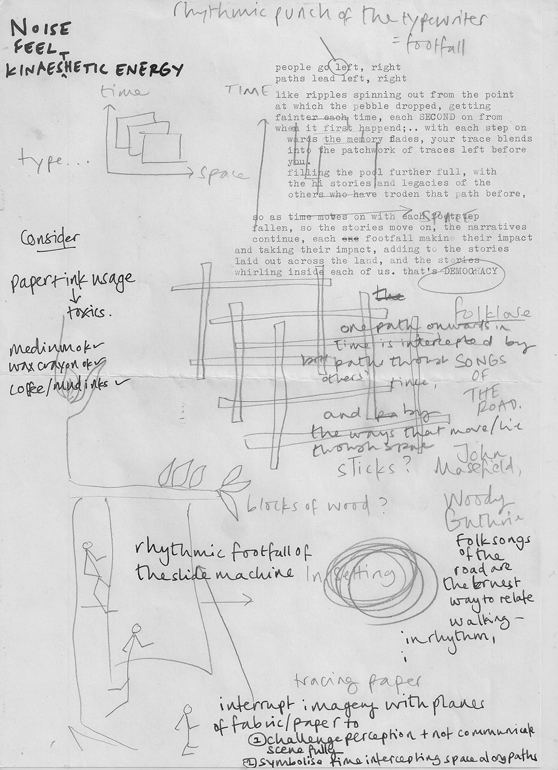 rhythmic punch of the typewriter
= footfall
NOISE
FEEL
KINAESTHETIC ENERGY
people go left, right
paths lead left, right
time
space
type...
TIME
like ripples spinning out from the point
at which the pebble dropped, getting
fainter each time, each SECOND on from
when it first happend;.. with each step on
wards the memory fades, your trace blends
into the patchwork of traces left before
you.
filling the pool further full, with
the hi stories and legacies of the
others who have troden that path before,
so as time moves on with each footstep
fallen, so the stories move on, the narratives
continue, each one footfall making their impact
and taking their impact, adding to the stories
laid out across the land, and the stories
whirling inside each of us. that's DEMOCRACY
Space
Consider
paper+ink usage
toxics.
medium ok
wax crayon ok
coffee/mud inks
the
one path onwards in
time is intercepted by
path through
others' time,
and by
the ways that move/lie
through space
folklore
SONGS
OF
THE
ROAD.
John
Masefield,
Woody
Guthrie
sticks?
blocks of wood?
Folksongs
of the
road are
the
way to relate
walking –
in rhythm,
rhythmic footfall of
the slide machine
In Setting
tracing paper
interrupt imagery with planes
of fabric/paper to
① challenge perception + not communicate
scene fully
② symbolise time intercepting space along paths